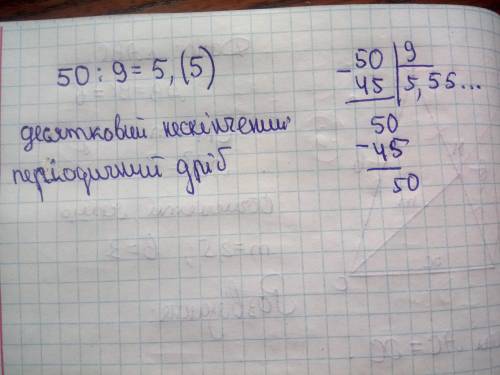 50 : 9 = 5, (5)
десятковий нескінченний
періодичний дріб
- 50 | 9
45 | 5,55...
50
- 45
50